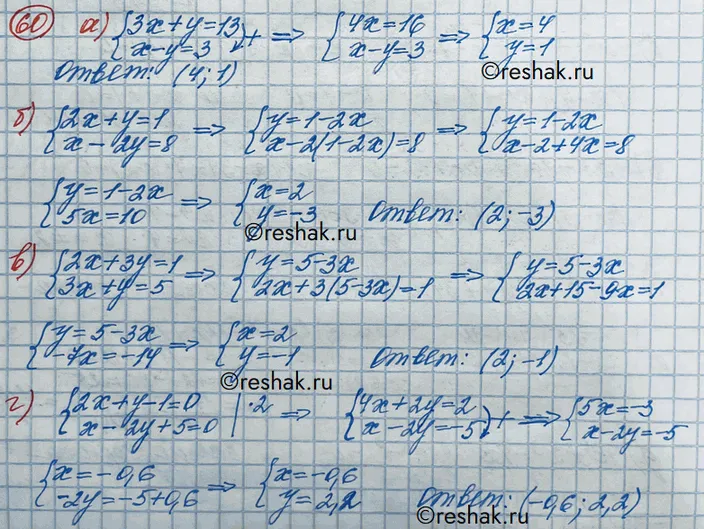 60 а) {3x+y=13 {x-y=3 + => {4x=16 {x-y=3 => {x=4 {y=1
Ответ: (4; 1)
©reshak.ru
б) {2x+y=1 {x-2y=8 => {y=1-2x {x-2(1-2x)=8 => {y=1-2x {x-2+4x=8
{y=1-2x {5x=10 => {x=2 {y=-3 Ответ: (2; -3)
©reshak.ru
в) {2x+3y=1 {3x+y=5 => {y=5-3x {2x+3(5-3x)=1 => {y=5-3x {2x+15-9x=1
{y=5-3x {-7x=-14 => {x=2 {y=-1 Ответ: (2; -1)
©reshak.ru
г) {2x+y-1=0 {x-2y+5=0 |·2 => {4x+2y=2 {x-2y=-5 + => {5x=-3 {x-2y=-5
{x=-0,6 {-2y=-5+0,6 => {x=-0,6 {y=2,2 Ответ: (-0,6; 2,2)
©reshak.ru